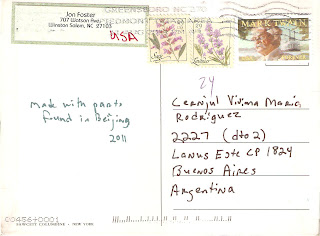 GREENSBORO NC 270
Jon Foster
707 Watson Ave.
Winston Salem, NC 27103
USA
MARK TWAIN
24
Made with parts
found in Beijing
2011
Cernjul Viviana Maria
Rodriguez
2227 (dto 2)
Lanus Este CP 1824
Buenos Aires
Argentina
00456+0001
FAWCETT COLUMBINE · NEW YORK